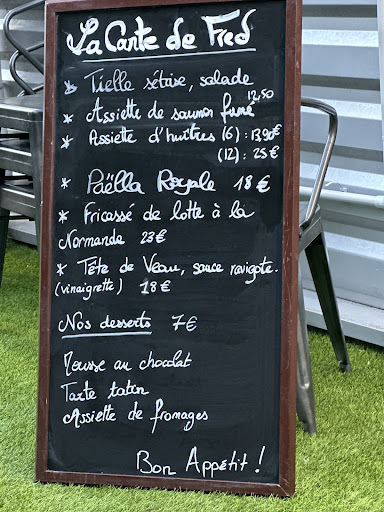 La Carte de Fred
* Tielle sétoise, salade
* Assiette de saumon fumé 12,50
* Assiette d'huîtres (6) : 13,90€
(12) : 25€
* Paëlla Royale 18€
* Fricassé de lotte à la
Normande 23€
* Tête de Veau, sauce ravigote.
(vinaigrette) 18€
Nos desserts 7€
Mousse au chocolat
Tarte tatin
Assiette de fromages
Bon Appétit !